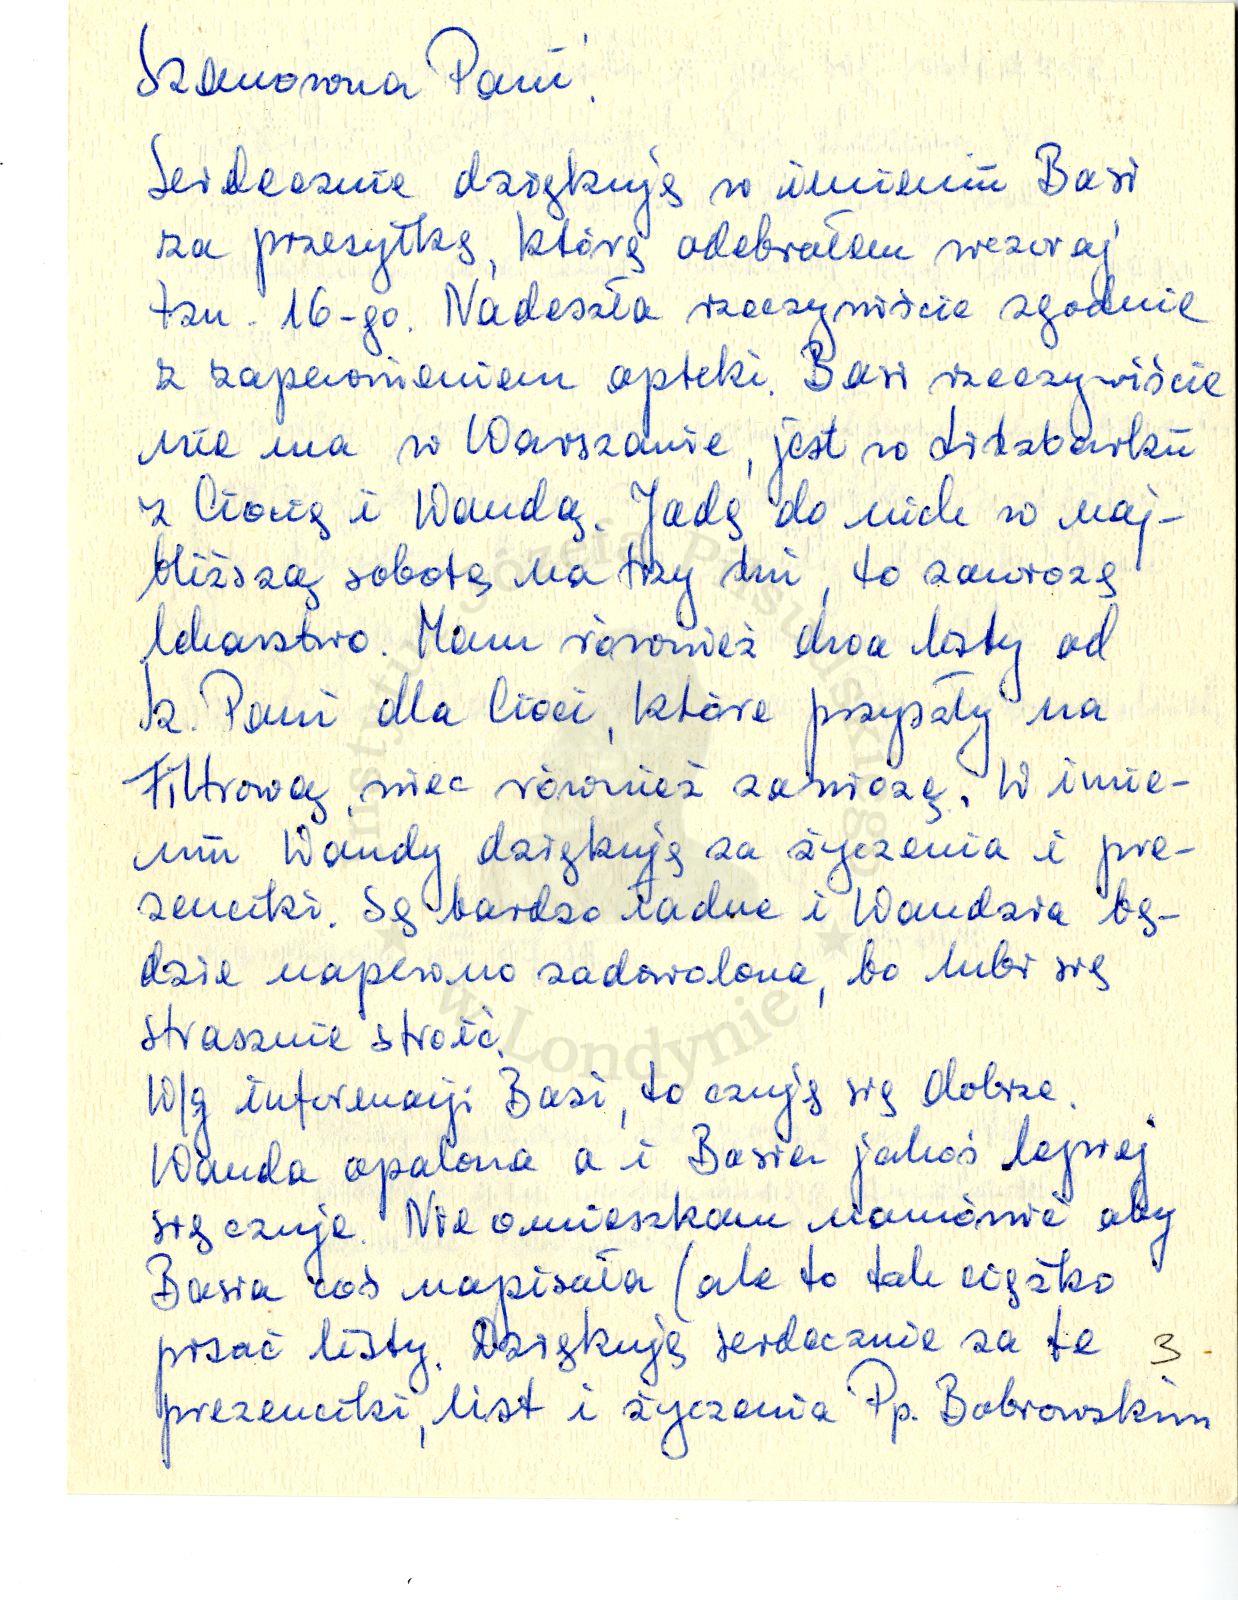 Szanowna Pani!
Serdecznie dziękuję w imieniu Basi
za przesyłkę, którą odebrałem wczoraj
tzn. 16-go. Nadeszła rzeczywiście zgodnie
z zapewnieniem apteki. Basi rzeczywiście
nie ma w Warszawie, jest w Lidzbarku
z Ciocią i Wandą. Jadę do nich w naj-
bliższą sobotę na trzy dni, to zawiozę
lekarstwo. Mam również dwa listy od
Sz. Pani dla Cioci, które przyszły na
Filtrową, więc również zawiozę. W imie-
niu Wandy dziękuję za życzenia i pre-
zenciki. Są bardzo ładne i Wandzia bę-
dzie napewno zadowolona, bo lubi się
strasznie stroić.
W/g informacji Basi, to czują się dobrze.
Wanda opalona a i Basia jakoś lepiej
się czuje. Nie omieszkam namówić aby
Basia coś napisała (ale to tak ciężko
pisać listy. Dziękuję serdecznie za te
3
prezenciki, list i życzenia Pp. Bobrowskim
Instytut Józefa Piłsudskiego
w Londynie